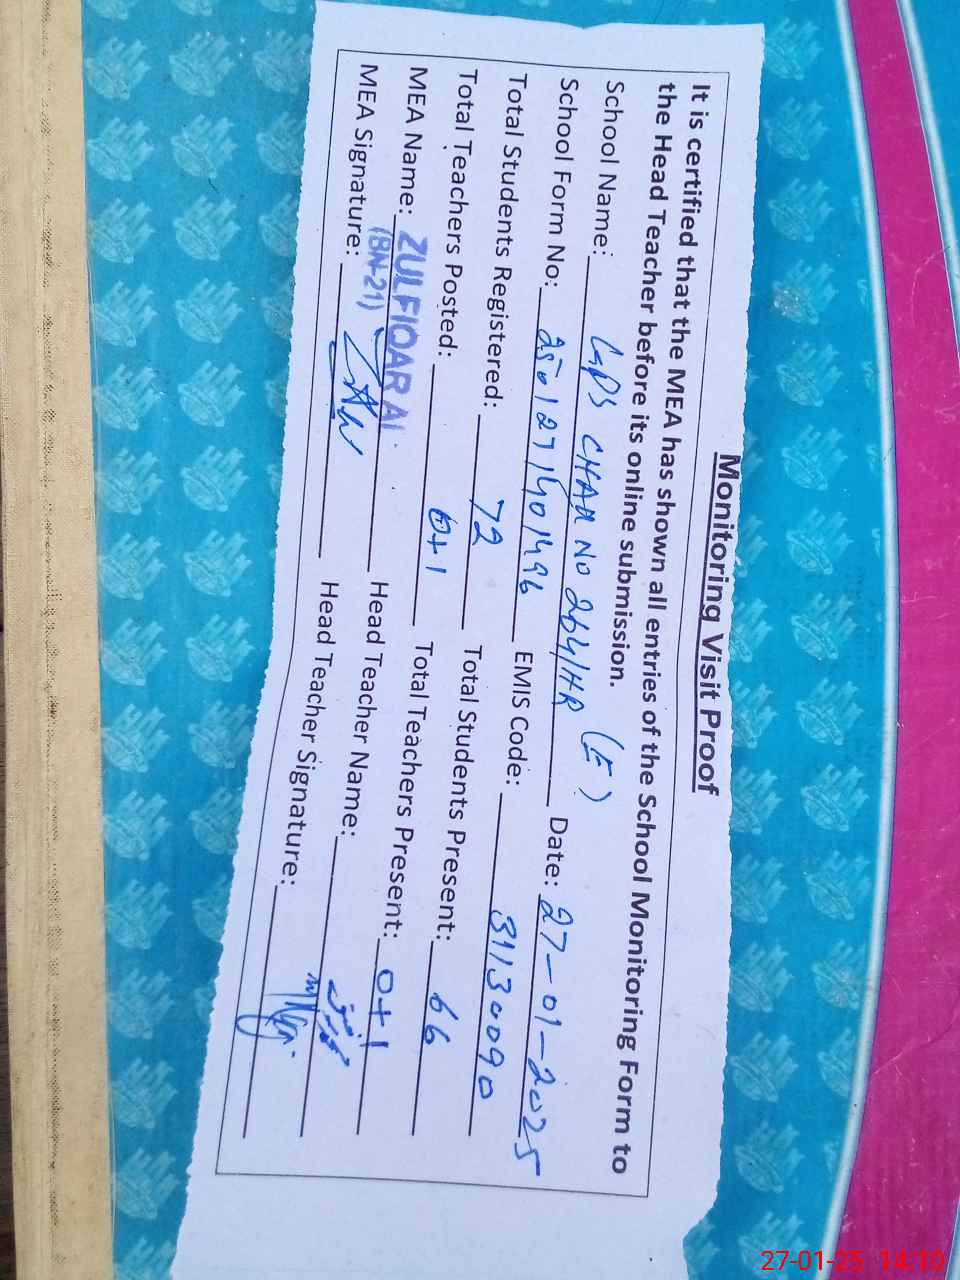 Monitoring Visit Proof
It is certified that the MEA has shown all entries of the School Monitoring Form to
the Head Teacher before its online submission.
School Name: GPS CHAK NO 264/HR (E) Date: 27-01-2025
School Form No: 2501271401496 EMIS Code: 31130090
Total Students Registered: 72 Total Students Present: 66
Total Teachers Posted: 0+1 Total Teachers Present: 0+1
MEA Name: ZULFIQAR ALI Head Teacher Name:
(BN-21)
MEA Signature: Head Teacher Signature:
27-01-25 14:10